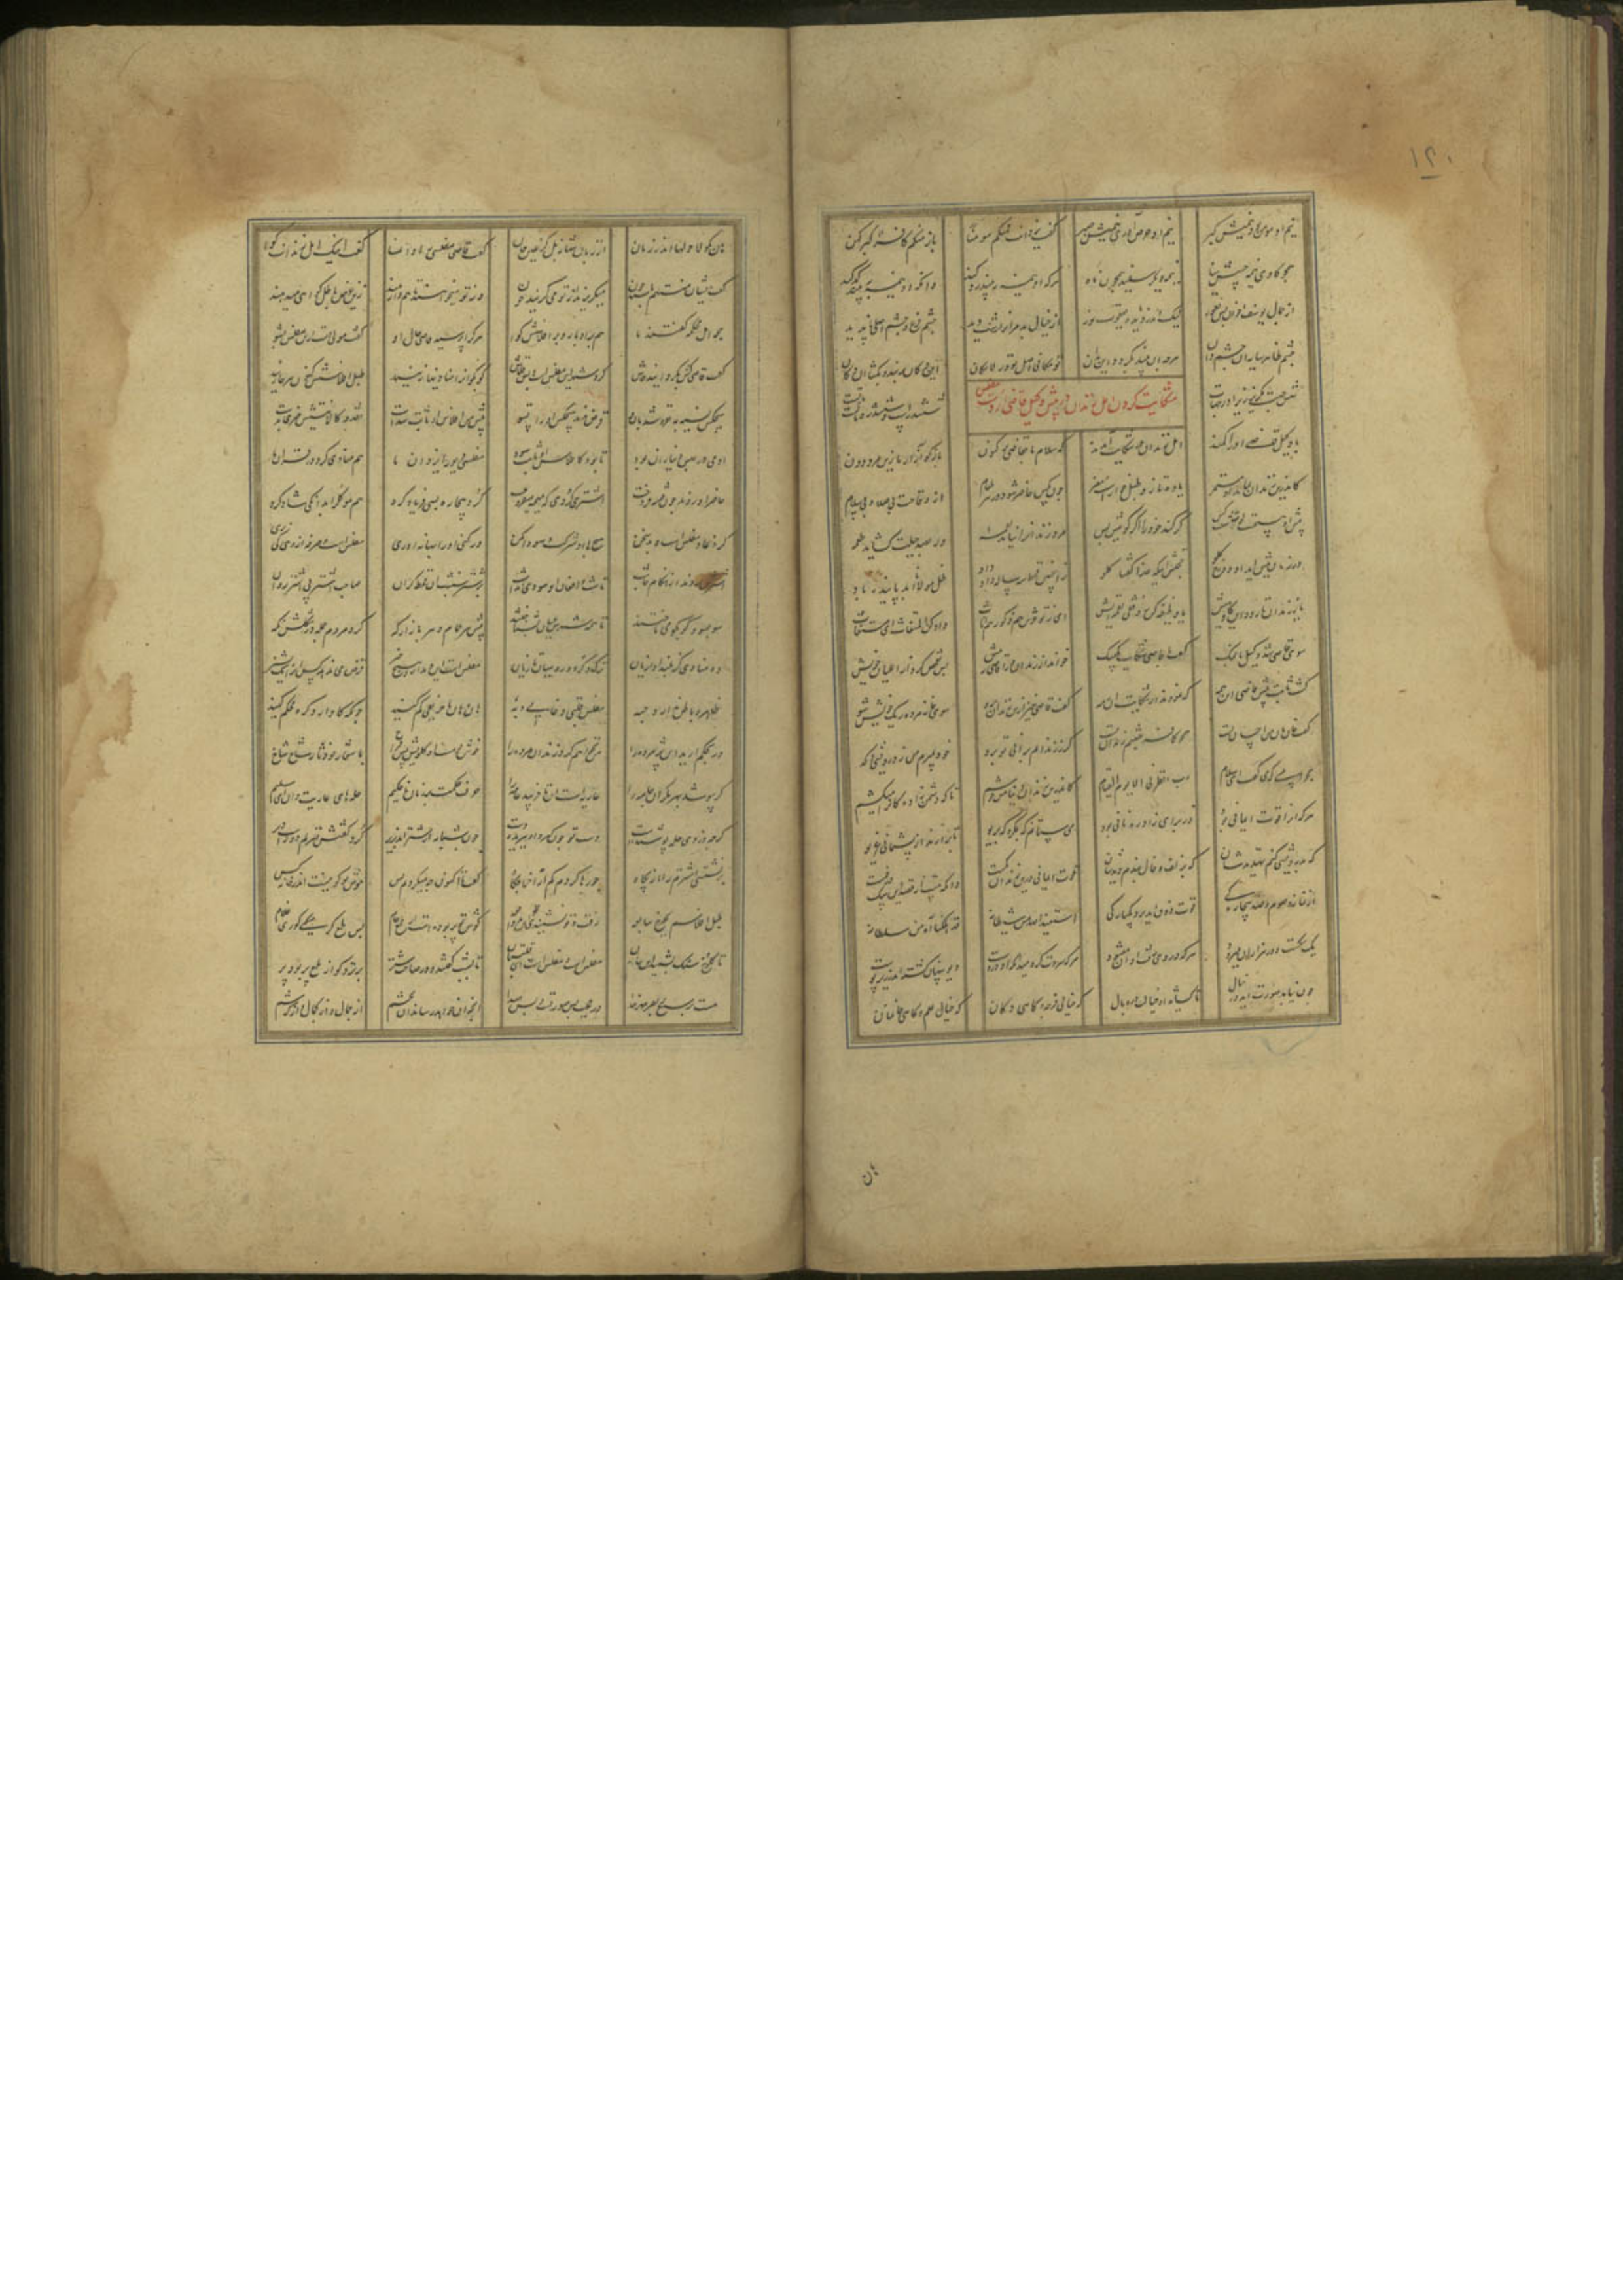 ۱۲۰
نیم او مومن بود نیمیش گبر نیم او حرص آوری نیمیش صبر گفت یزدانت فمنکم مومن باز منکم کافر گبر کهن
همچو گاوی نیمه چپش سیاه نیمه دیگر سپید همچون ماه هرکه او نیمه ببیند رد کند وانکه او نیمه ببیند کد کند
از جمال یوسف اخوان بس نفور لیک اندر دیده یعقوب نور از خیال بد مر او را زشت دید چشم فرع و چشم اصلی ناپدید
چشم ظاهر سایه آن چشم دان هرچه آن بیند بگردد این بدان تو مکانی اصل تو در لامکان این دکان بربند و بگشا آن دکان
شش جهت مگریز زیرا در جهات ششدرست و ششدره ماتست مات
شکایت کردن اهل زندان در پیش وکیل قاضی از دست مفلس
با وکیل قاضی ادراکمند اهل زندان در شکایت آمدند که سلام ما بقاضی بر کنون باز گو آزار ما زین مرد دون
کاندرین زندان بماند او مستمر یاوه تاز و طبل خوارست و مضر چون مگس حاضر شود در هر طعام از وقاحت بی صلا و بی سلام
پیش او هیچست لوت شصت کس کر کند خود را اگر گوئیش بس مرد زندان را نیاید لقمه ور بصد حیلت گشاید طعمه
در زمان پیش آید آن دوزخ گلو حجتش اینکه خدا گفتا کلوا زین چنین قحط سه ساله داد داد ظل مولانا ابد پاینده باد
یا ز زندان تا رود این گاومیش یا وظیفه کن ز وقفی لقمه ایش ای ز تو خوش هم ذکور و هم اناث داد کن المستغاث المستغاث
سوی قاضی شد وکیل با نمک گفت با قاضی شکایت یک بیک خواند او را قاضی از زندان به پیش پس تفحص کرد از اعیان خویش
گشت ثابت پیش قاضی آن همه که نمودند از شکایت آن رمه گفت قاضی خیز ازین زندان برو سوی خانه مرده ریگ خویش شو
گفت خان و مان من احسان تست همچو کافر جنتم زندان تست گر ز زندانم برانی تو برد خود بمیرم من ز درویشی و کد
رب انظرنی الی یوم القیام کاندرین زندان دنیا من خوشم تا که دشمن زادگان را میکشم
هرکه او را قوت ایمانی بود وز برای زاد ره نانی بود می ستانم گه بمکر و گه بریو تا برآرند از پشیمانی غریو
گه بدرویشی کنم تهدیدشان گه بزلف و خال بندم دیدشان قوت ایمانی درین زندان کمست وانکه هست از قصد این سگ در خمست
از نماز و صوم و صد بیچارگی قوت ذوق آید برد یکبارگی استعیذ الله من شیطانه قد هلکنا آه من سلطانه
یک سگست و در هزاران میرود هرکه در وی رفت او آن میشود هرکه سردت کرد میدان کو دروست دیو پنهان گشته اندر زیر پوست
چون نیابد صورت آید در خیال تا کشاند آن خیالت در وبال گه خیال فرجه و گاهی دکان گه خیال علم و گاهی خان و مان
هان
هان بگو لاحولها اندر زمان از زبان تنها نه بل کز عین جان گفت قاضی مفلسی را وانما گفت اینک اهل زندانت گوا
گفت ایشان متهم باشند چون میگریزند از تو میگریند خون وز تو میخواهند هم تا وارهند زین غرض باطل گواهی میدهند
جمله اهل محکمه گفتند ما هم بر ادبار و بر افلاسش گوا هرکه را پرسید قاضی حال او گفت مولا دست ازین مفلس بشو
گفت قاضی کش بگردانید فاش گرد شهر این مفلس است و بس قلاش کو بکو او را مناداها زنید طبل افلاسش عیان هر جا زنید
هیچکس نسیه بنفروشد بدو قرض ندهد هیچکس او را تسو پیش من افلاس او ثابت شدست نقد و کالا نیستش چیزی بدست
آدمی در حبس دنیا زان بود تا بود کافلاس او ثابت شود مفلسی دیو را یزدان ما هم منادی کرد در قرآن ما
حاضر آوردند چون فتنه فروخت اشتر کردی که هیزم میفروخت کرد بیچاره بسی فریاد کرد هم موکل را بدانگی شاد کرد
کو دغا و مفلس است و بدسخن هیچ با او شرکت و سودا مکن ور کنی او را بهانه آوری مفلس است و صرفه از وی کی بری
اشترش بردند از هنگام چاشت تا شب و افغان او سودی نداشت بر شتر بنشست آن قحط گران صاحب اشتر پی اشتر دوان
سو بسو و کو بکو می تاختند تا همه شهرش عیان بشناختند پیش هر حمام و هر بازارگه کرد مردم جمله در شکلش نگه
ده منادی گر بلند آوازیان ترک و کرد و رومیان و تازیان مفلس است این و ندارد هیچ چیز قرض تا ندهد کس او را یک پشیز
ظاهر و باطن ندارد حبه مفلسی قلبی دغایی دبه هان و هان با او حریفی کم کنید چونکه کاو آرد گره محکم کنید
ور بحکم آرید این پژمرده را من نخواهم کرد زندان مرده را خوش دمست او و گلویش بس فراخ با شعار نو دثار شاخ شاخ
گر بپوشد بهر مکر آن جامه را عاریه است آن تا فریبد عامه را حرف حکمت بر زبان ناحکیم حله های عاریت دان ای سلیم
گرچه دزدی حله پوشیده است دست تو چون گیرد آن ببریده دست چون شبانه از شتر آمد بزیر کرد گفتش منزلم دورست و دیر
بر نشستی اشترم را از پگاه جو رها کردم کم از اخراج کاه گفت تا اکنون چه میکردیم پس هوش تو کو نیست اندر خانه کس
طبل افلاسم بچرخ سابعه رفت و تو نشنیده گوش تو پر بوده است از طمع خام پس طمع کر میکند کور ای غلام
تا کلوخ و سنگ بشنید این بیان مفلس است و مفلس است این قلتبان تا بشب گفتند و در صاحب شتر بر نزد کو از طمع پر بود پر
هست بر سمع و بصر مهر خدا در حجب بس صورتست و بس صدا آنچه او خواهد رساند آن بچشم از جمال و از کمال و از کرشم